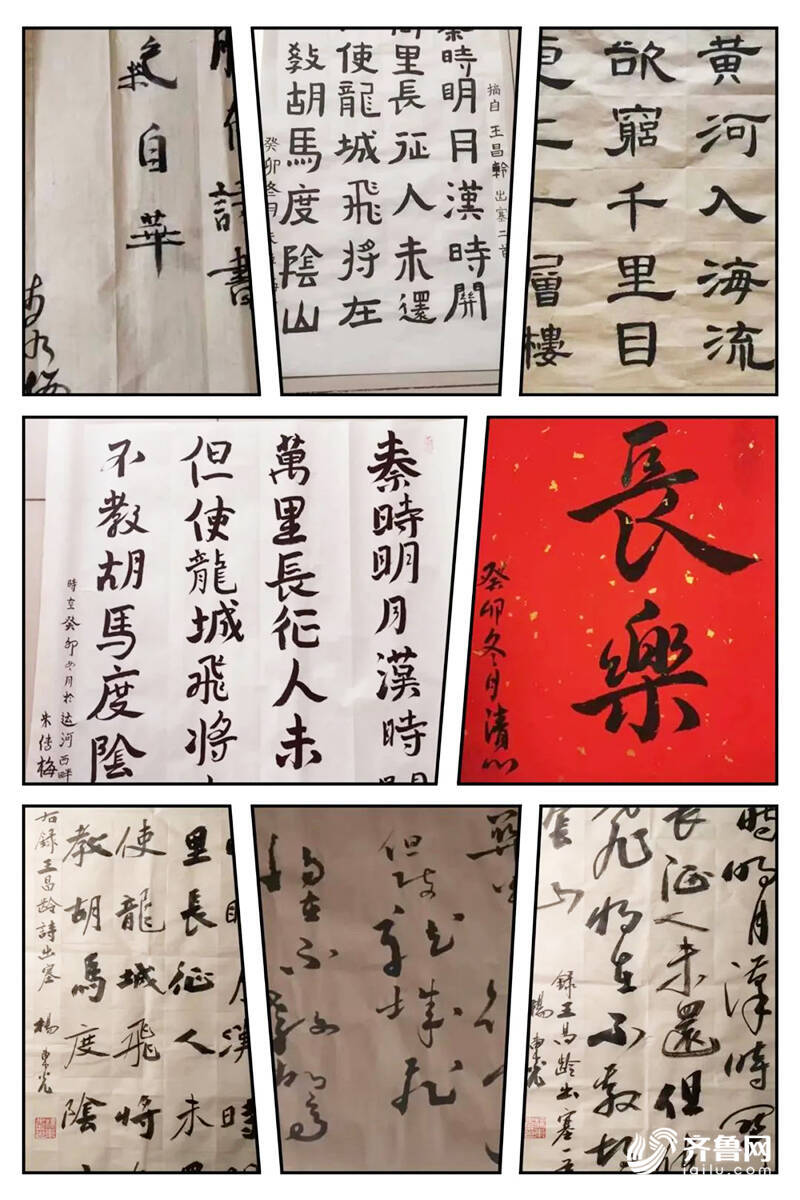 腹有詩書
氣自華
秦時明月漢時關
里長征人未還
使龍城飛將在
教胡馬度陰山
摘自 王昌龄 出塞二首
癸卯冬月
黄河入海流
欲窮千里目
更上一層樓
秦時明月漢時
萬里長征人未
但使龍城飛將
不教胡馬度陰
時立癸卯冬月於运河西畔
朱傳梅
長樂
癸卯冬月清心
明月漢時
里長征人未
使龍城飛將
教胡馬度陰
右録王昌龄詩出塞
楊東光
但使龍城飛
將在不教胡馬
時明月漢時關
長征人未還但使
飛將在不教胡
陰山
録王昌龄出塞一首
楊東光
齐鲁网
iqilu.com